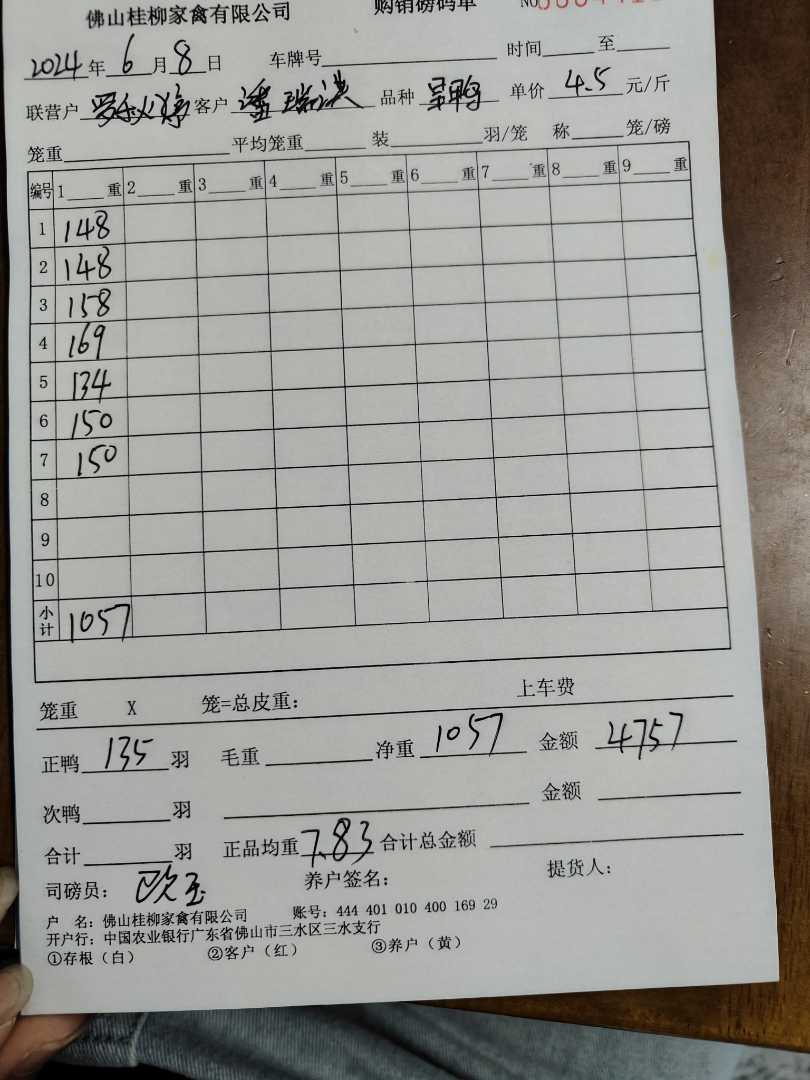 佛山桂柳家禽有限公司 购销磅码单 NO
2024年6月8日 车牌号 时间 至
联营户 客户 潘瑞洪 品种 呈鸭 单价 4.5 元/斤
笼重 平均笼重 装 羽/笼 称 笼/磅
编号 1 重 2 重 3 重 4 重 5 重 6 重 7 重 8 重 9 重
1 148
2 148
3 158
4 169
5 134
6 150
7 150
8
9
10
小计 1057
笼重 X 笼=总皮重: 上车费
正鸭 135 羽 毛重 净重 1057 金额 4757
次鸭 羽 金额
合计 羽 正品均重 7.83 合计总金额
司磅员: 欧玉 养户签名: 提货人:
户 名: 佛山桂柳家禽有限公司 账号: 444 401 010 400 169 29
开户行: 中国农业银行广东省佛山市三水区三水支行
①存根(白) ②客户(红) ③养户(黄)